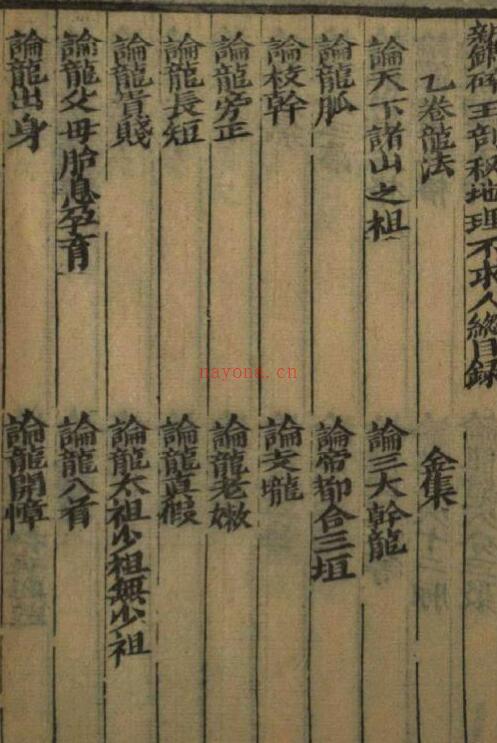 新鐫砕玉剖秘地理不求人總目錄
乙卷龍法　金集
論天下諸山之祖　論三大幹龍
論龍脉　論帝都合三垣
論枝幹　論支壠
論龍旁正　論龍老嫩
論龍長短　論龍真假
論龍貴賤　論龍太祖少祖無少祖
論龍父母胎息孕育　論龍入首
論龍出身　論龍開幛
nayona.cn